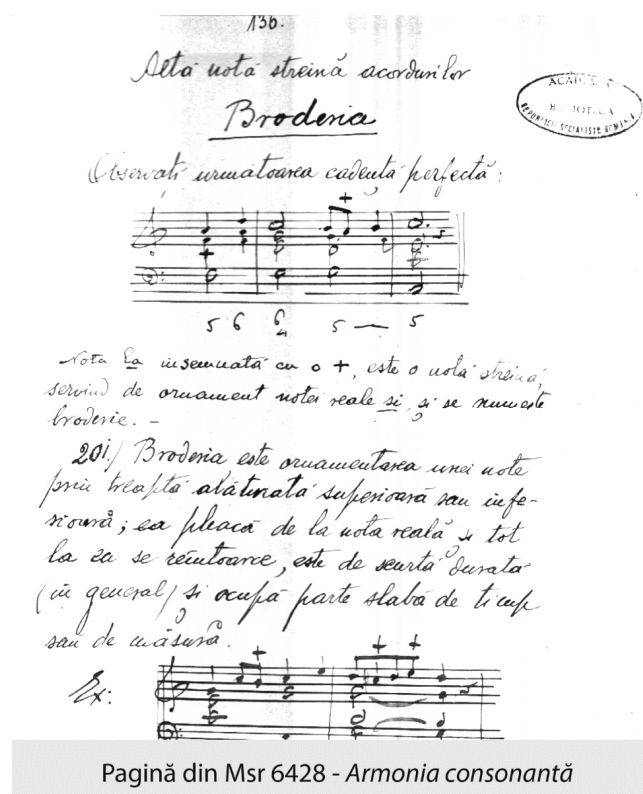 136.
Altă notă streină acordurilor
Broderia
ACADEMIA
BIBLIOTECA
REPUBLICII SOCIALISTE ROMÂNIA
Observați următoarea cadență perfectă:
+
5 6 6 4 5 — 5
Nota La insemnată cu o +, este o notă streină,
servind de ornament notei reale si, și se numește
broderie. –
201.) Broderia este ornamentarea unei note
prin treaptă alăturată superioară sau infe-
rioară; ea pleacă de la nota reală și tot
la ea se reîntoarce, este de scurtă durată
(în general) și ocupă parte slabă de timp
sau de măsură.
+ + +
Ex:
Pagină din Msr 6428 - Armonia consonantă